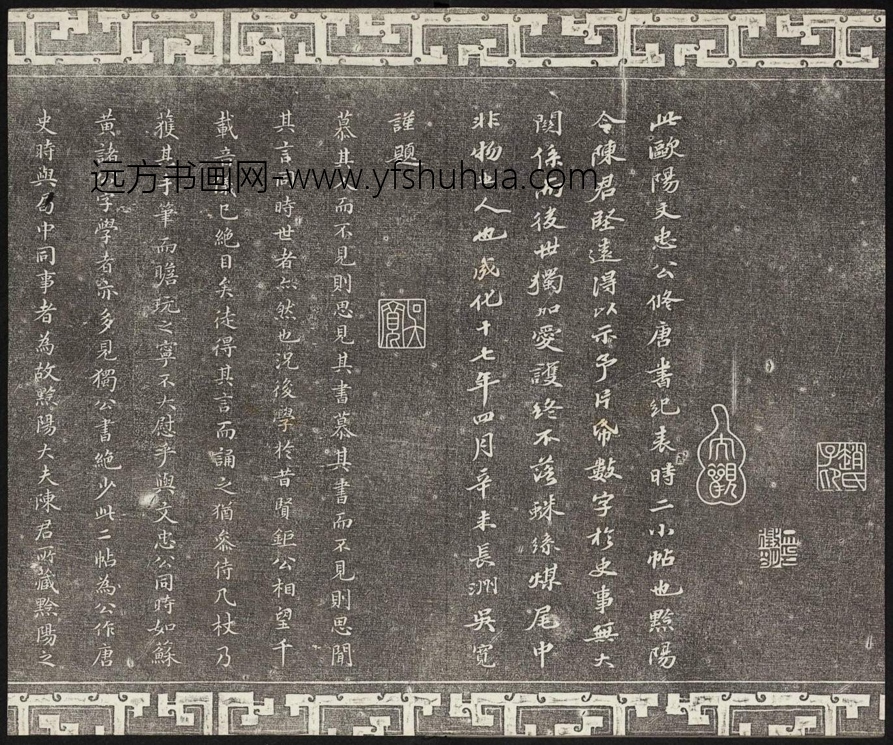 趙氏子昂
大觀
此歐陽文忠公脩唐書紀表時二小帖也黟陽
令陳君堅遠得以示予片帋數字於史事無大
關係而後世獨加愛護終不落蛛絲煤尾中
非物以人也成化十七年四月辛未長洲吳寬
謹題
吳寬
慕其人而不見則思見其書慕其書而不見則思聞
其言同時世者尚然也況後學於昔賢鉅公相望千
載音儀已絕目矣徒得其言而誦之猶叅侍几杖乃
獲其手筆而瞻玩之寧不大慰乎與文忠公同時如蘇
黃諸公字學者亦多見獨公書絕少此二帖為公作唐
史時與局中同事者為故黟陽大夫陳君所藏黟陽之
远方书画网-www.yfshuhua.com